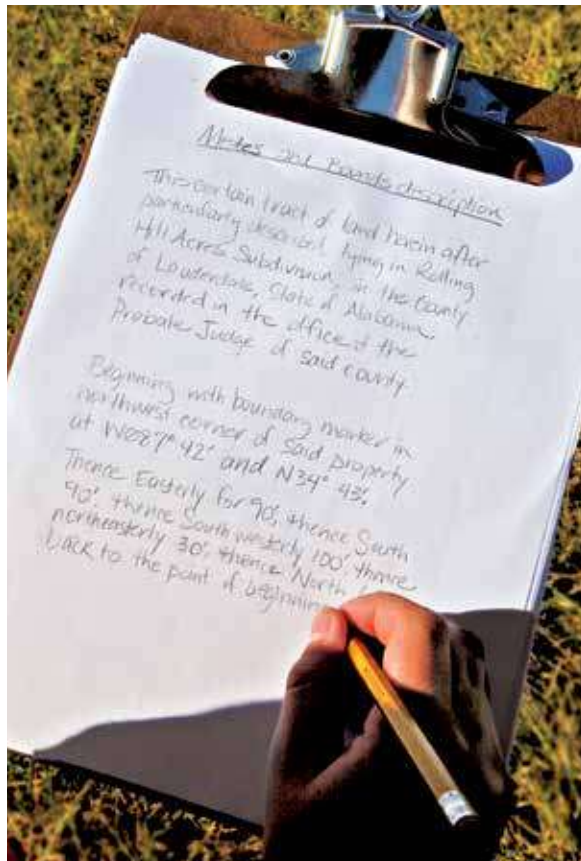 Metes and Bounds description
This certain tract of land herein after
particularly described lying in Rolling
Hill Acres Subdivision, in the County
of Lauderdale, State of Alabama,
recorded in the office of the
Probate Judge of said county.
Beginning with boundary marker in
northwest corner of said property
at W087° 42' and N34° 43'.
Thence Easterly for 90', thence South
90', thence South westerly 100' thence
northeasterly 30', thence North
back to the point of beginning